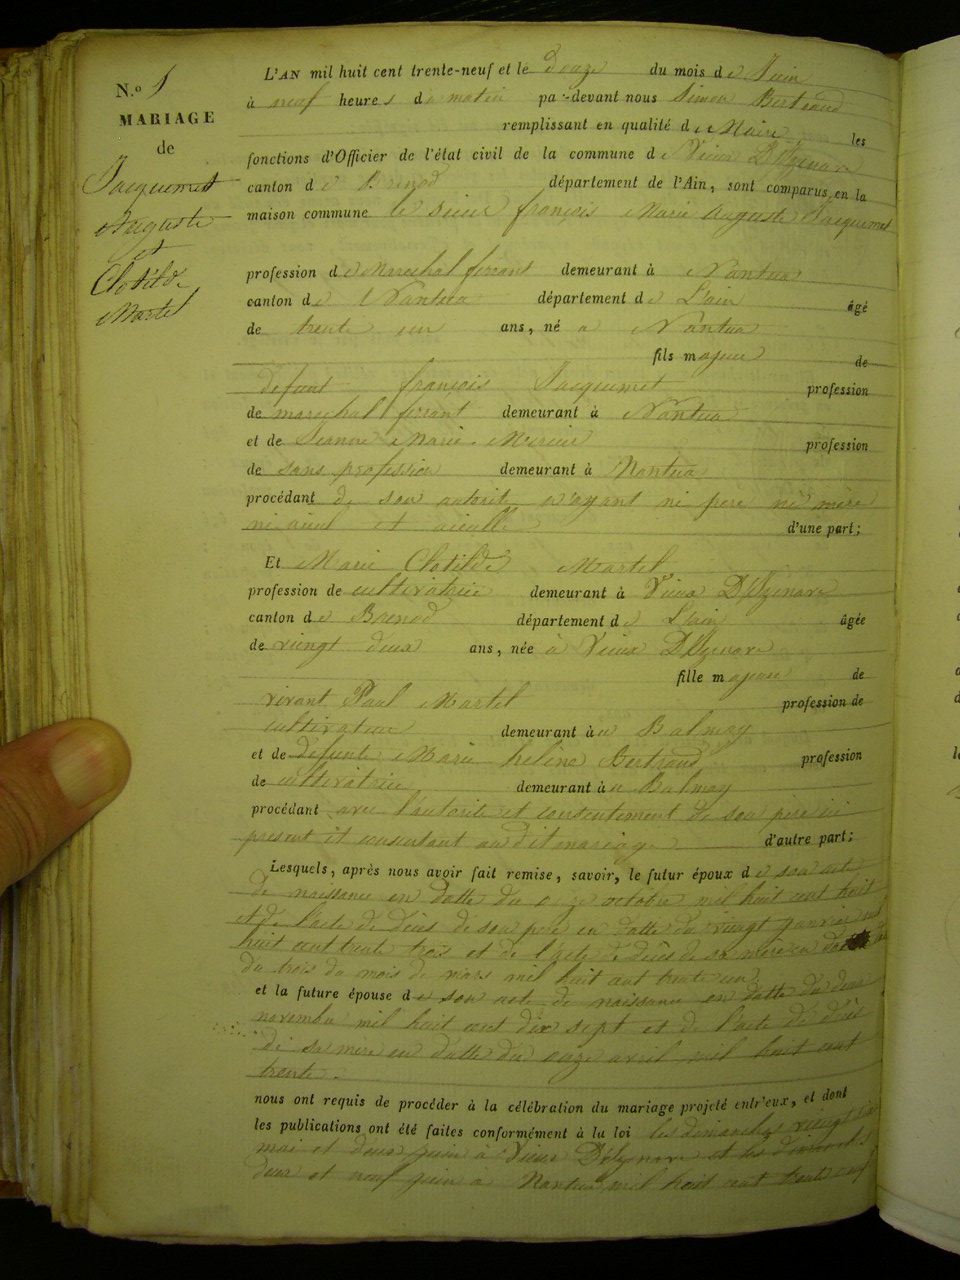 N.o 5
MARIAGE
de
Jacquemet
Auguste
et
Clotilde
Martel
L'AN mil huit cent trente-neuf et le douze du mois de Juin
à neuf heures du matin par-devant nous Simon Bertrand
remplissant en qualité de Maire les
fonctions d'Officier de l'état civil de la commune de Vieux D'Izenave
canton de Brenod département de l'Ain, sont comparus en la
maison commune le sieur françois Marie Auguste Jacquemet
profession de Marechal ferrant demeurant à Nantua
canton de Nantua département de L'ain âgé
de trente un ans, né a Nantua
fils majeur de
defunt françois Jacquemet profession
de marechal ferrant demeurant à Nantua
et de Jeanne Marie profession
de sans profession demeurant à Nantua
procédant de son autorité n'ayant ni pere ni mère
ni aieul et aieulle d'une part;
Et Marie Clotilde Martel
profession de cultivatrice demeurant à Vieux D'Izenave
canton de Brenod département de L'ain âgée
de vingt deux ans, née à Vieux D'Izenave
fille majeure de
vivant Paul Martel profession de
cultivateur demeurant à Balmay
et de defunte Marie heline Bertrand profession
de cultivatrice demeurant à Balmay
procédant avec l'autorité et consentement de son pere ici
present et consentant au dit mariage d'autre part;
Lesquels, après nous avoir fait remise, savoir, le futur époux de son acte
de naissance en datte du onze octobre mil huit cent huit
et de l'acte de décès de son pere en datte du vingt janvier mil
huit cent trente trois et de l'acte de décès de sa mère en datte
du trois du mois de mars mil huit cent trente un
et la future épouse de son acte de naissance en datte du deux
novembre mil huit cent dix sept et de l'acte de décès
de sa mère en datte du onze avril mil huit cent
trente.
nous ont requis de procéder à la célébration du mariage projeté entr'eux, et dont
les publications ont été faites conformément à la loi les dimanches vingt six
mai et deux juin à Vieux D'Izenave et les dimanches
deux et neuf juin à Nantua mil huit cent trente neuf